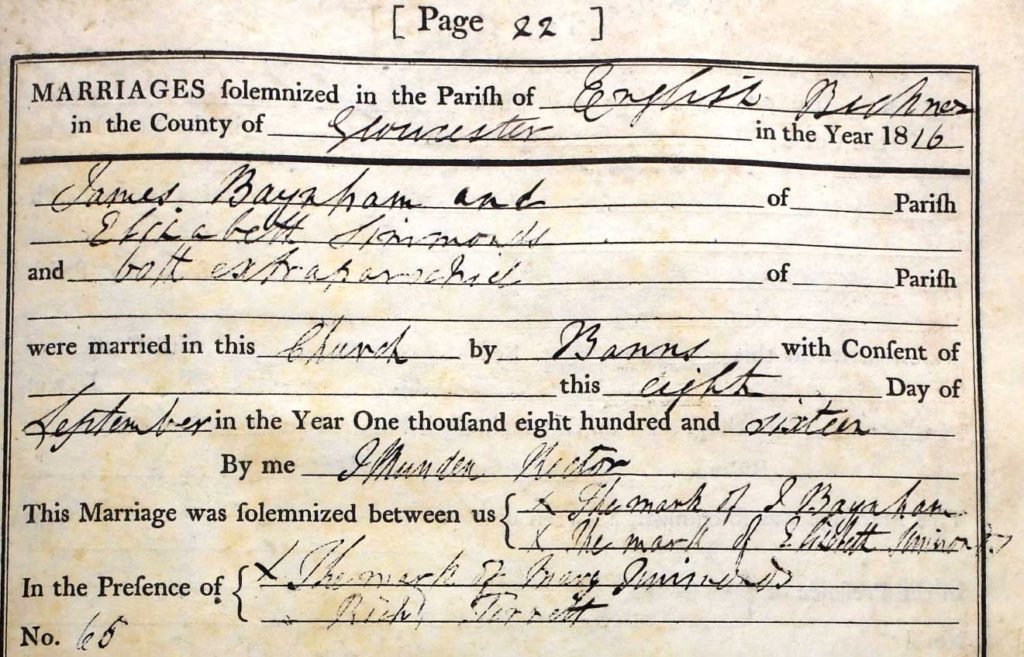 [ Page 22 ]
MARRIAGES ſolemnized in the Pariſh of English Bicknor
in the County of Gloucester in the Year 1816
James Baynham and of Pariſh
Elizabeth Simmonds
and both extraparochial of Pariſh
were married in this Church by Banns with Conſent of
this eighth Day of
September in the Year One thouſand eight hundred and sixteen
By me J Munden Rector
This Marriage was ſolemnized between us
X The mark of J Baynham
X The mark of Elizbeth Simmonds
In the Preſence of
X The mark of Mary Simmonds
Richd Terrett
No. 65